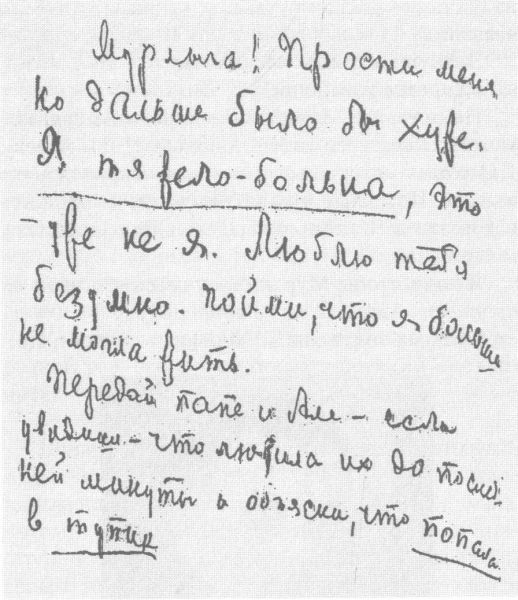 Мурлыга! Прости меня
но дальше было бы хуже.
Я тяжело-больна, это
– уже не я. Люблю тебя
безумно. Пойми, что я больше
не могла жить.
Передай папе и Але – если
увидишь – что любила их до послед-
ней минуты и объясни, что попала
в тупик